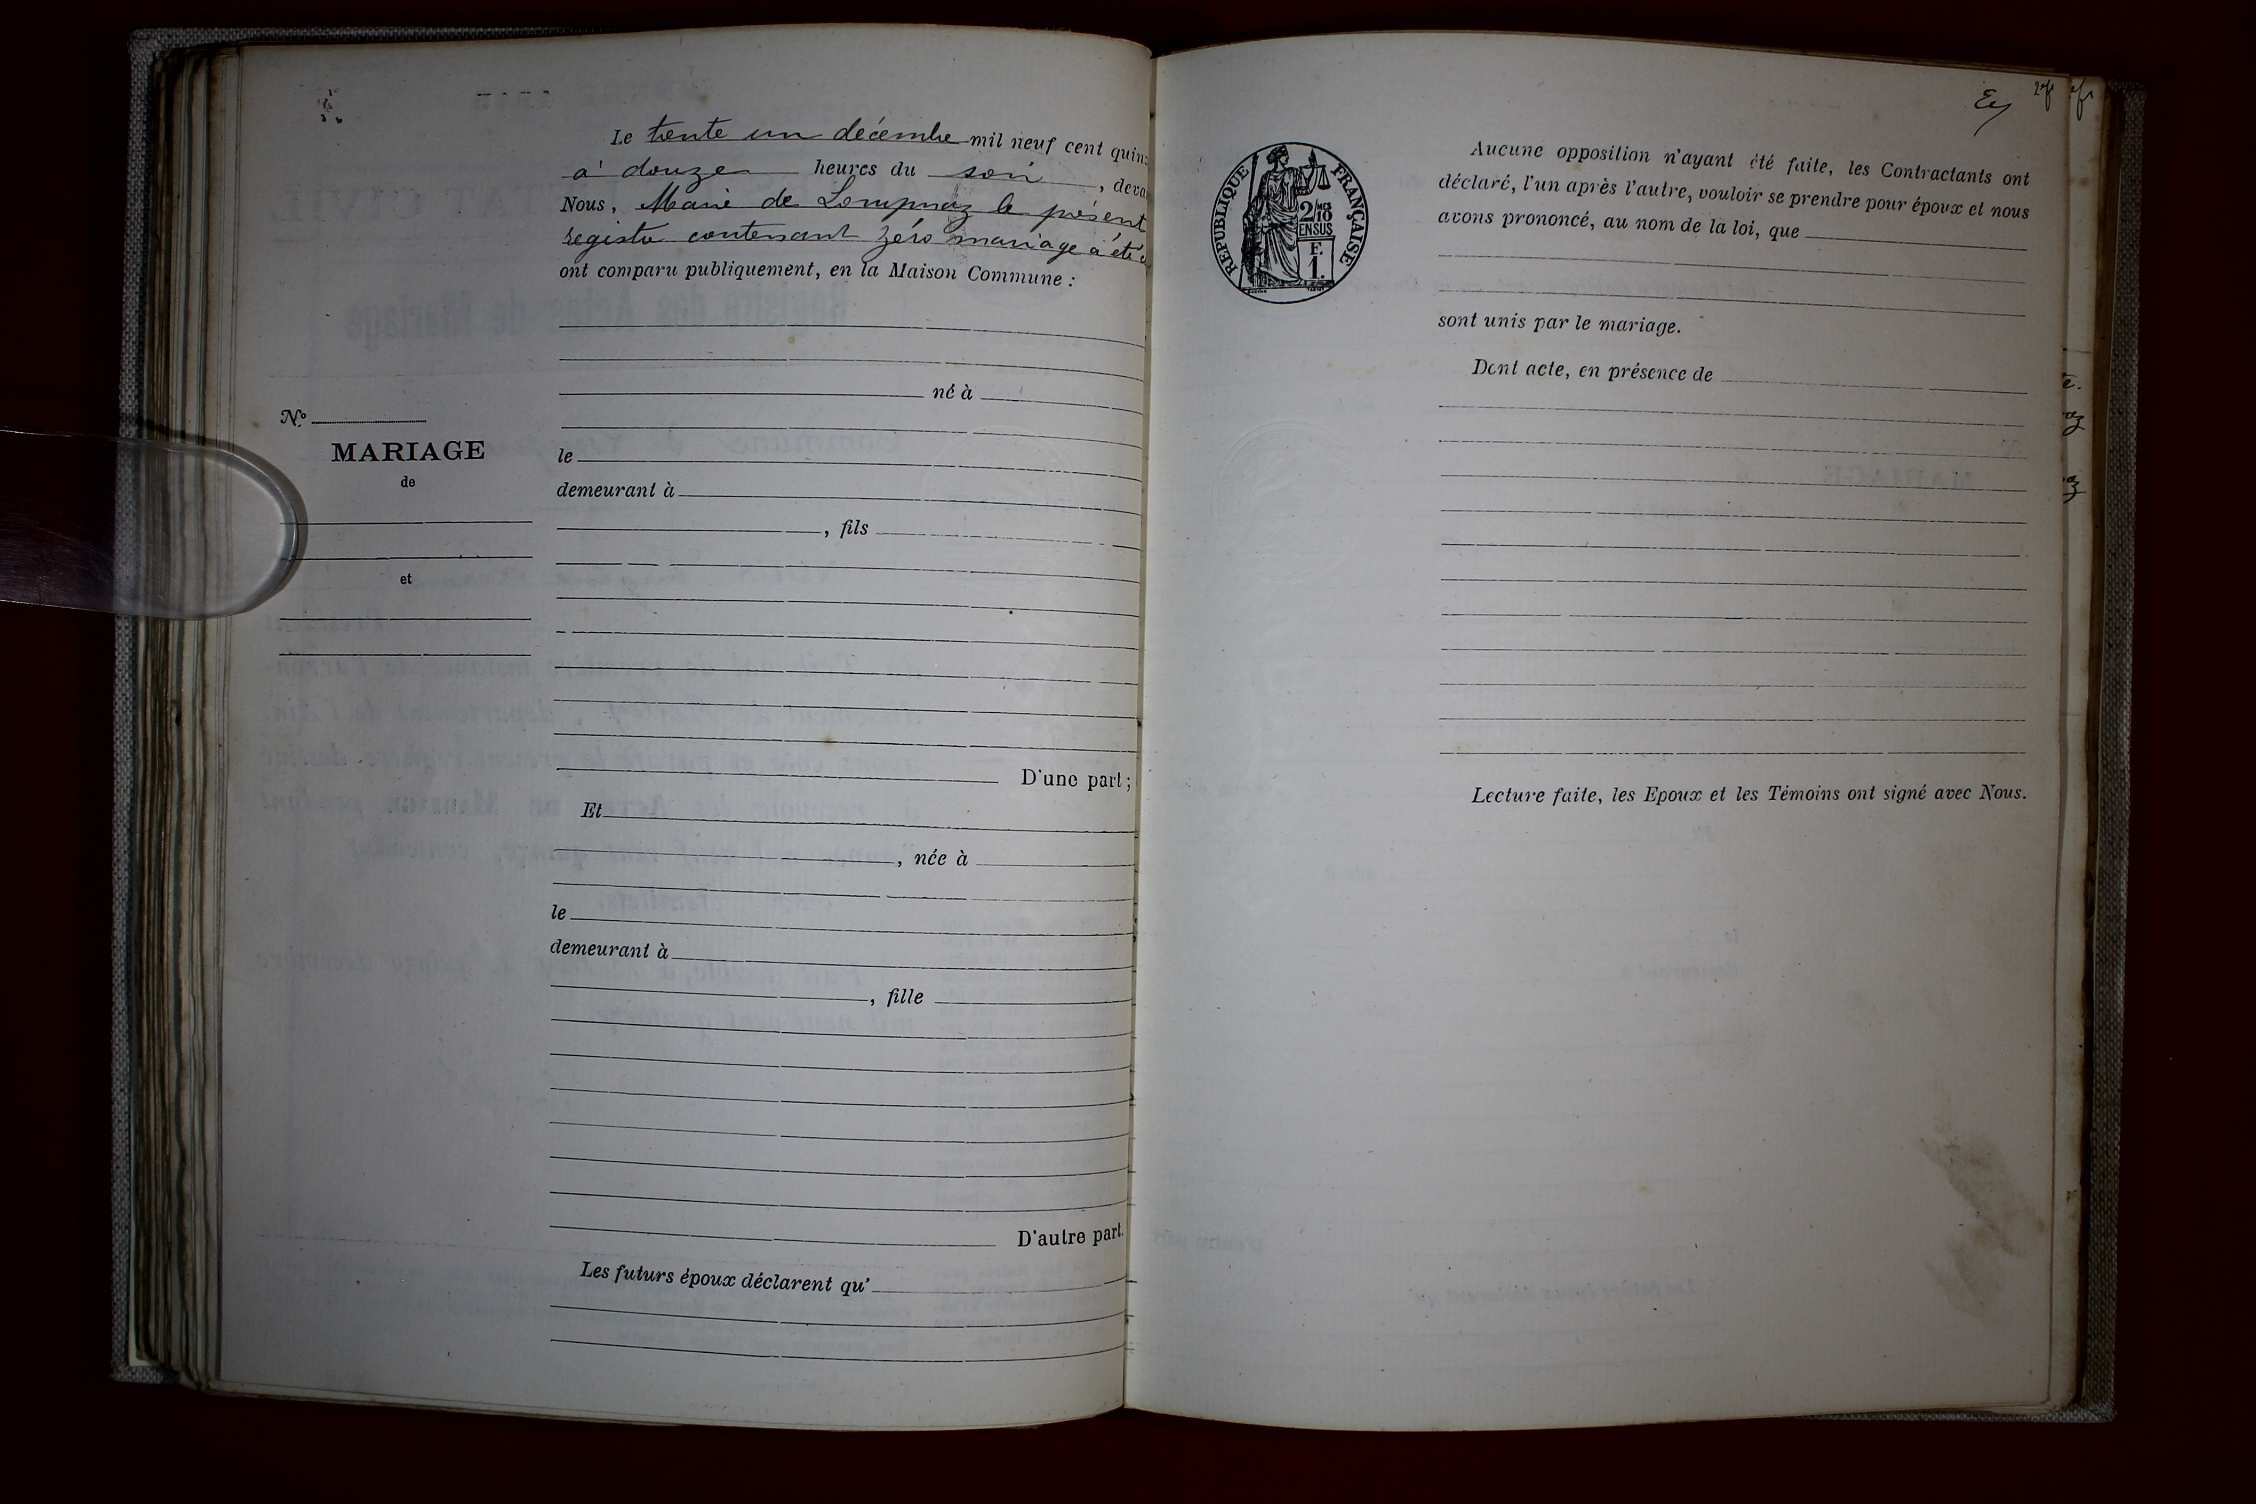 Le trente un décembre mil neuf cent quin
à douze heures du soir, deva
Nous, Maire de Lompnaz le présent
registre contenant zéro mariage a été
ont comparu publiquement, en la Maison Commune :
né à
No
MARIAGE
le
de
demeurant à
, fils
et
D'une part ;
Et
, née à
le
demeurant à
, fille
D'autre part.
Les futurs époux déclarent qu'
RÉPUBLIQUE FRANÇAISE
2/10
EN SUS
F.
1.
Aucune opposition n'ayant été faite, les Contractants ont
déclaré, l'un après l'autre, vouloir se prendre pour époux et nous
avons prononcé, au nom de la loi, que
sont unis par le mariage.
Dont acte, en présence de
Lecture faite, les Epoux et les Témoins ont signé avec Nous.